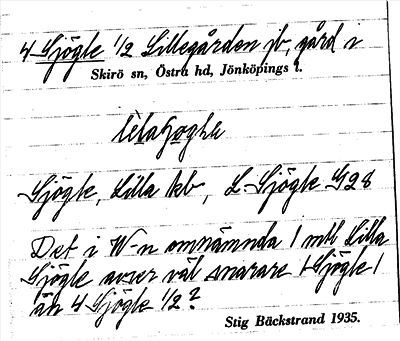 4 Sjögle ½ Lillegården jb, gård i
Skirö sn, Östra hd, Jönköpings l.
Sjögle, Lilla kb, L. Sjögle G28
Det i W-n omnämnda 1 mtl Lilla
Sjögle avser väl snarare 1 Sjögle 1
än 4 Sjögle ½?
Stig Bäckstrand 1935.